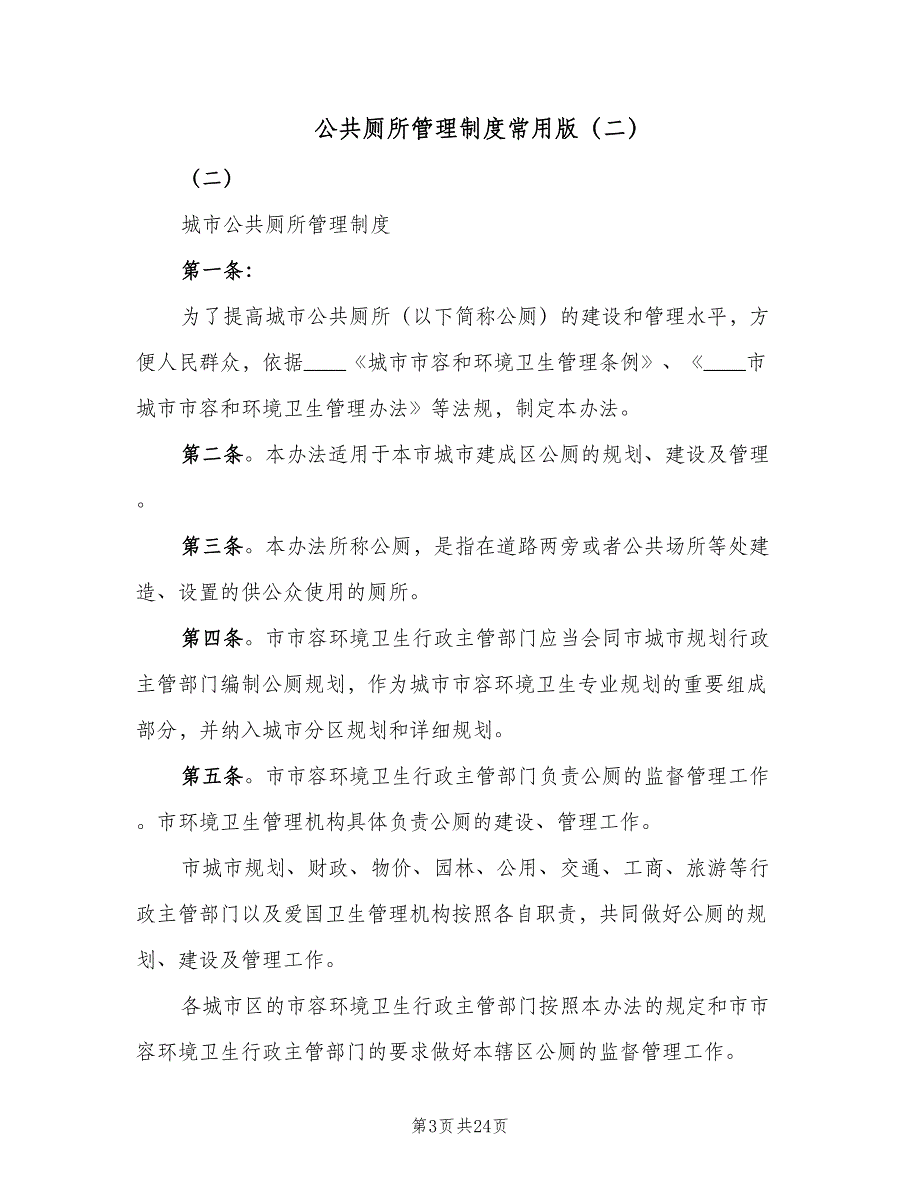 公共厕所管理制度常用版（二）
（二）
城市公共厕所管理制度
第一条：
为了提高城市公共厕所（以下简称公厕）的建设和管理水平，方
便人民群众，依据____《城市市容和环境卫生管理条例》、《____市
城市市容和环境卫生管理办法》等法规，制定本办法。
第二条。本办法适用于本市城市建成区公厕的规划、建设及管理
。
第三条。本办法所称公厕，是指在道路两旁或者公共场所等处建
造、设置的供公众使用的厕所。
第四条。市市容环境卫生行政主管部门应当会同市城市规划行政
主管部门编制公厕规划，作为城市市容环境卫生专业规划的重要组成
部分，并纳入城市分区规划和详细规划。
第五条。市市容环境卫生行政主管部门负责公厕的监督管理工作
。市环境卫生管理机构具体负责公厕的建设、管理工作。
市城市规划、财政、物价、园林、公用、交通、工商、旅游等行
政主管部门以及爱国卫生管理机构按照各自职责，共同做好公厕的规
划、建设及管理工作。
各城市区的市容环境卫生行政主管部门按照本办法的规定和市市
容环境卫生行政主管部门的要求做好本辖区公厕的监督管理工作。
第3页共24页